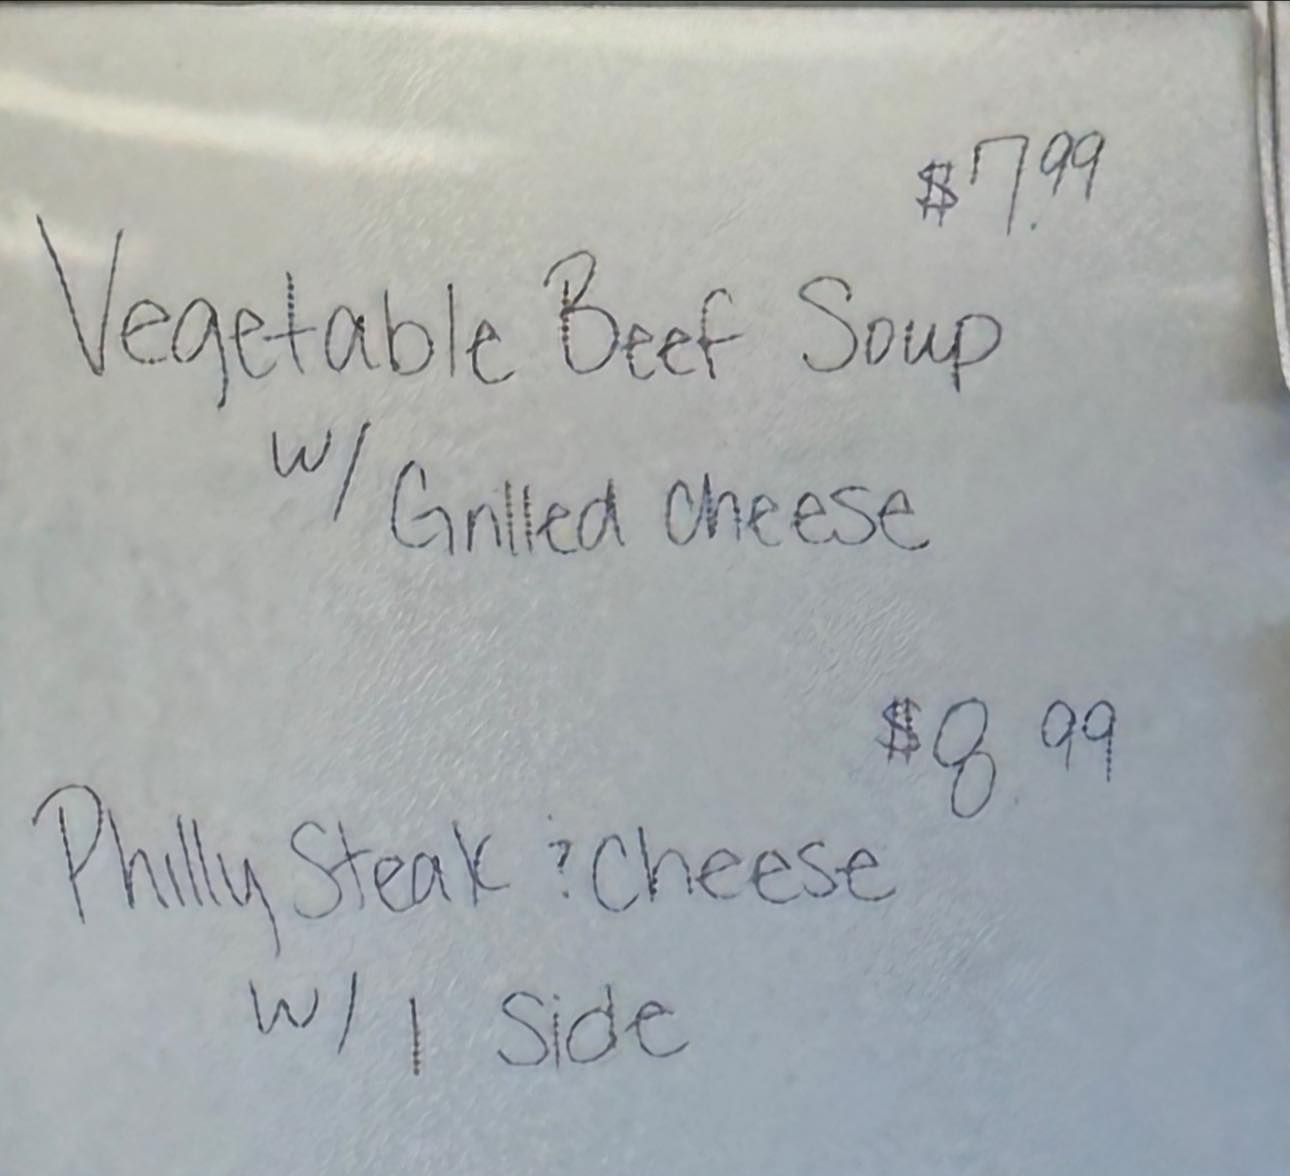 $7.99
Vegetable Beef Soup
w/ Grilled cheese
$8.99
Philly Steak & cheese
w/ 1 Side